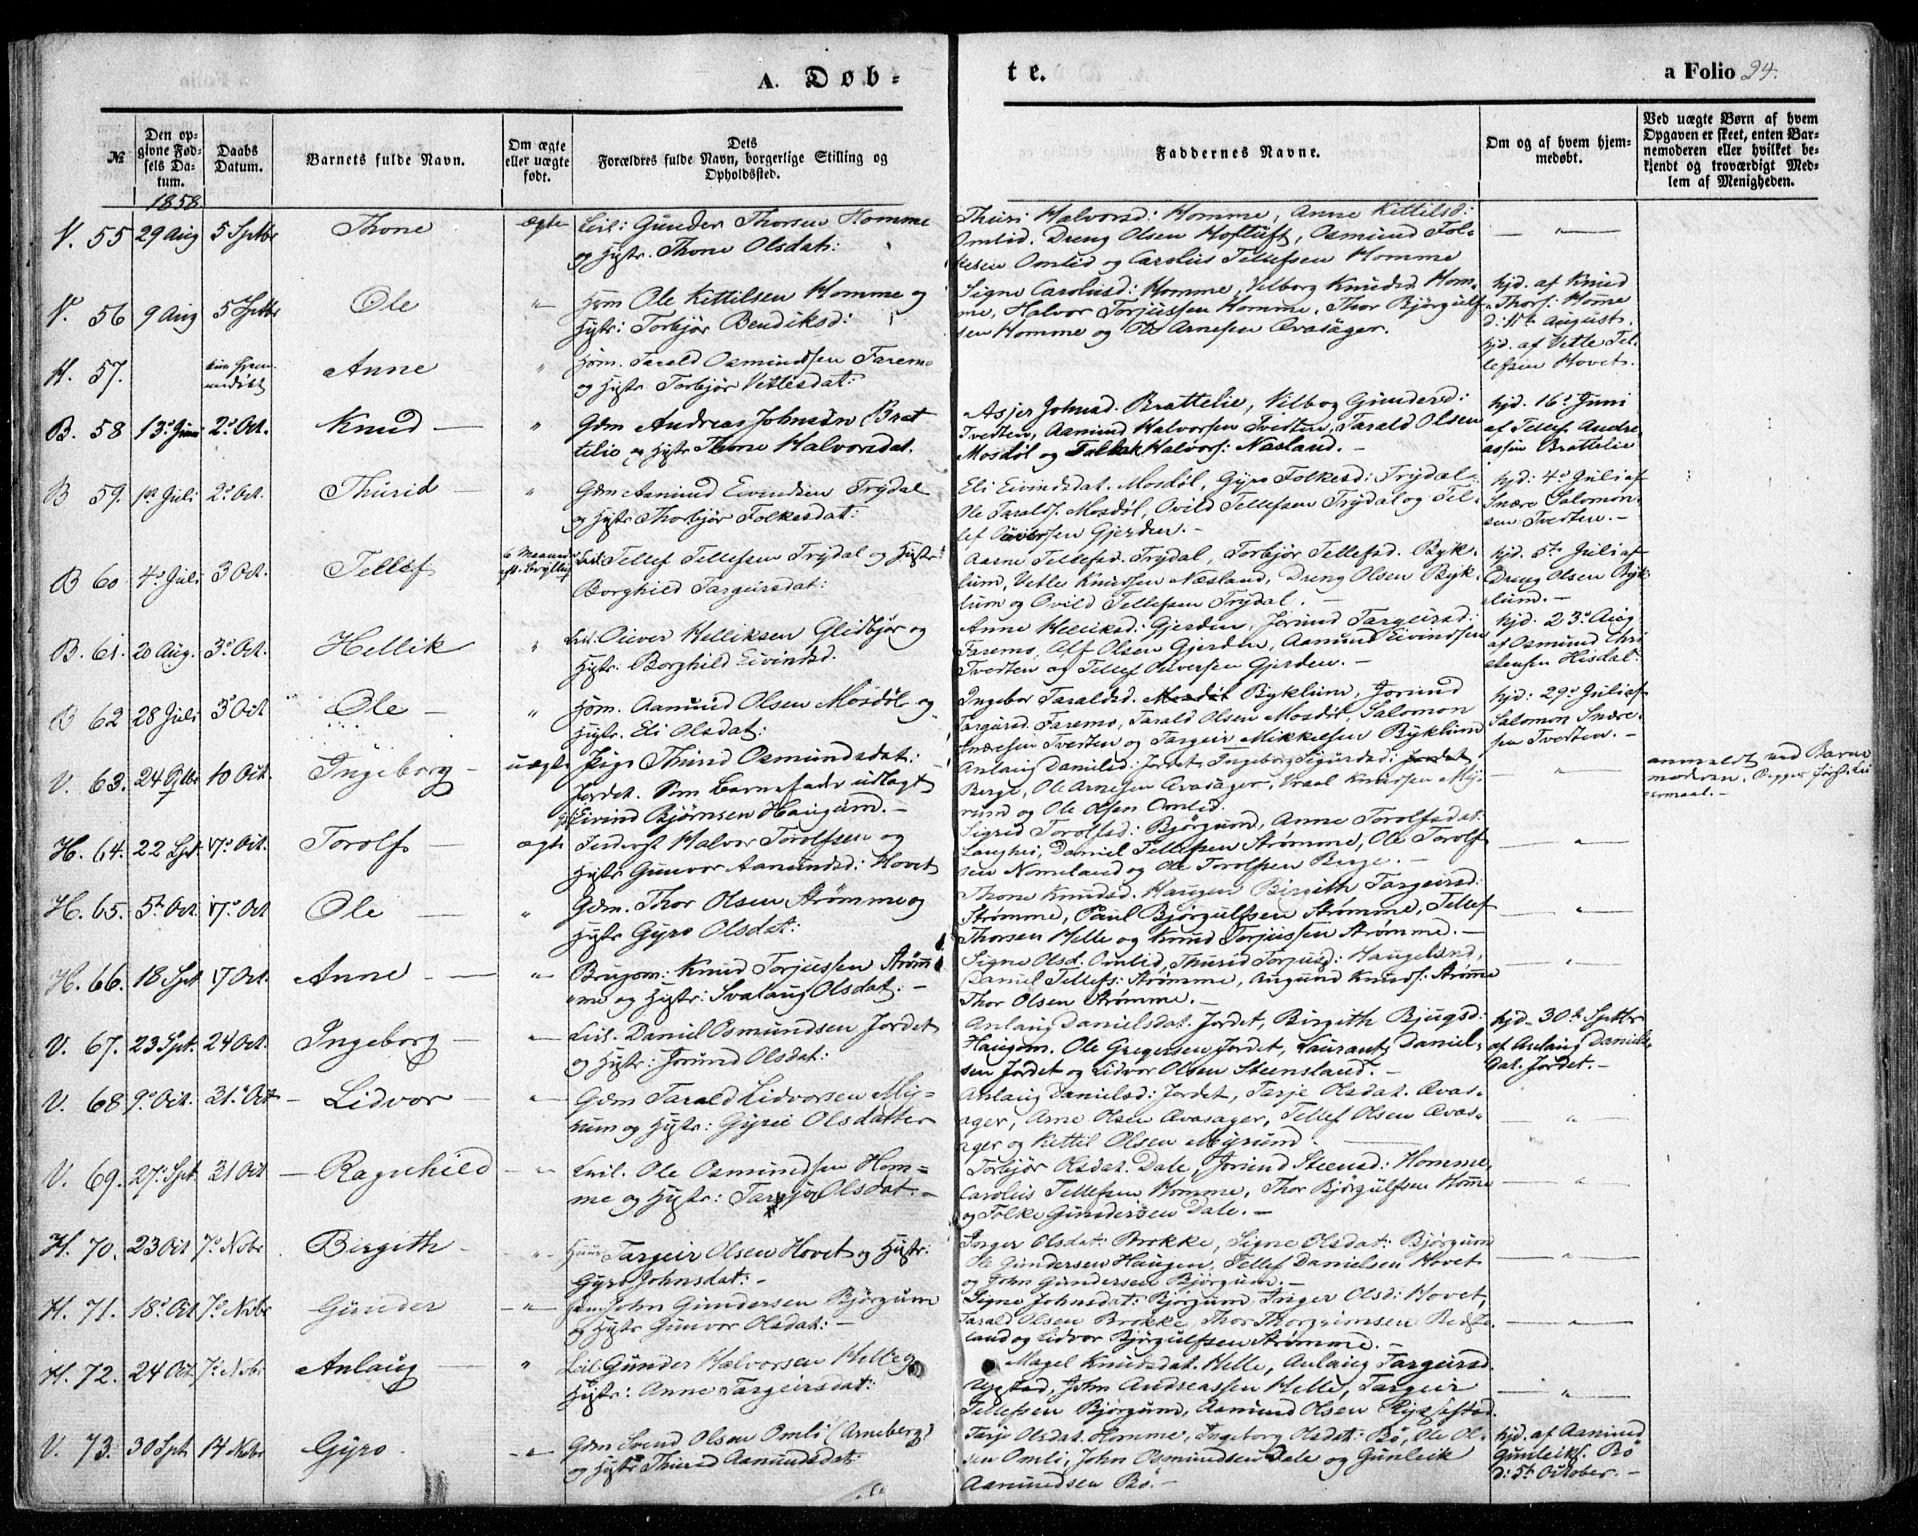 A. Døb-
te.
a Folio 24.
№
Den op-
givne Fød-
sels Da-
tum.
Daabs
Datum.
Barnets fulde Navn.
Om ægte
eller uægte
født.
Dets
Forældres fulde Navn, borgerlige Stilling og
Opholdssted.
Faddernes Navne.
Om og af hvem hjem-
medøbt.
Ved uægte Børn af hvem
Opgaven er skeet, enten Bar-
nemoderen eller hvilket be-
kjendt og troværdigt Med-
lem af Menigheden.
1858.
V. 55 29 Aug 5 Septbr Thone ægte Leil: Gunder Thorsen Homme
og Hustr. Thone Olsdat:
Thuri Halvorsd: Homme, Anne Kittilsd:
Omlid. Dreng Olsen Hoftuft, Osmund Fol-
kesen Omlid og Carolius Tellefsen Homme
— " —
V. 56 9 Aug 5 Septbr Ole " Hjm Ole Kittilsen Homme og
Hustr: Torbjør Bendiksd:
Signe Caroliusd: Homme, Vilborg Knudsd. Hom-
me, Halvor Torjussen Homme, Thor Bjørgulf-
sen Homme og Ole Arnesen Qvasager.
hjd. af Knud
Thors: Homme
d: 11te August.
H. 57. kun hjem-
medøbt Anne " Hjm. Tarald Osmundsen Faremo
og Hustr Torbjør Vetlesdat:
hjd. af Vetle Tel-
lefsen Hovet.
B. 58 13de Juni 2de Oct. Knud — " Gdm Andreas Johnsøn Brat-
telie og Hustr Thone Halvorsdat.
Asjer Johnsd. Brattelie, Vilbog Gundersd:
Tvedten, Aamund Halvorsen Tvedten, Tarald Olsen
Mosdøl og Halvors: Næsland. —
hjd. 16de Juni
af Tellef Andre-
assen Brattelie
B 59. 1ste Juli 2de Oct. Thurid — " Gdm Aamund Eivindsen Trydal
og Hustr Thorbjør Folkesdat:
Eli Eivindsdat. Mosdøl, Gyro Folkesd: Trydal
Ole Taralds. Mosdøl, Ovild Tellefsen Trydal og Tel-
lef Oiversen Gjerden. —
hjd: 4de Juli af
Snære Salomon-
sen Tvedten. —
B 60. 4de Juli 3 Oct. Tellef 6 Maaneder
eft. Bryllup Leil: Tellef Tellefsen Trydal og Hustr:
Borghild Targeirsdat:
Aasne Tellefsd. Trydal, Torbjør Tellefsd. Byk-
lum, Vetle Knudsen Næsland, Dreng Olsen Byk-
lum og Ovild Tellefsen Trydal. —
hjd. 5te Juli af
Dreng Olsen Byk-
lum. —
B. 61. 20 Aug. 3de Oct. Hellik " Leil: Oiever Helliksen Glidbjør og
Hustr: Borghild Eivindsd.
Anne Helliksd: Gjerden, Jorund Targeirsd:
Faremo, Olf Olsen Gjerden, Aamund Eivindsen
Tvedten og Tellef Oiversen Gjerden. —
hjd. 23de Aug
af Osmund Chri-
stensen Hisdal.
B 62 28 Juli 3 Oct Ole — " Hjm. Aamund Olsen Mosdøl og
Hustr. Eli Olsdat:
Ingebor Taraldsd. Mosdøl Byklum, Jorund
Targirsd. Faremo, Tarald Olsen Mosdøl, Salomon
Snæresen Tvedten og Targeir Mikkelsen Byklum
hjd: 29de Juli af
Salomon Snære-
sen Tvedten. —
V. 63. 24 10 Oct. Ingeborg — uægte Pige Thurid Osmundsdat:
Jordet. Som Barnefader udlagt
Eivind Bjørnsen Haugum. —
Anlaug Danielsd: Jordet, Ingeborg Sigurdsd: Jordet,
Berge, Ole Arnesen Qvasager, Vraal Knudsen My-
rund og Ole Olsen Omlid.
— " —
anmeldt ved Barne-
moderen. Begges første Lei-
ermaal. —
H. 64. 22 Spt. 17de Oct. Torolf — ægte Halvor Torolfsen og
Hustr Gunvor Aamundsd: Hovet
Sigrid Torolfsd: Bjørgum, Anne Torolfsdat.
Langhei, Daniel Tellefsen Strømme, Ole Torolf-
sen Nomeland og Ole Torolfsen Berge. —
— " —
H. 65. 5te Oct. 17de Oct Ole — " Gdm. Thor Olsen Strømme og
Hustr Gyro Olsdat:
Thone Knudsd. Haugen Birgith Targeirsd:
Strømme, Paul Bjørgulfsen Strømme, Tellef
Thorsen Helle og Knud Torjussen Strømme. —
— " —
H. 66. 18 Spt 17 Oct. Anne — " Brugsm: Knud Torjussen Strøm-
me og Hustr: Svalaug Olsdat: —
Signe Olsd. Omlid, Thurid Torjusd: Haugeland,
Daniel Tellefs: Strømme, Augund Knuds: Strømme
Thor Olsen Strømme. —
— " —
V. 67. 23 Spt. 24 Oct. Ingeborg — " Leil. Daniel Osmundsen Jordet
og Hustr: Jorund Olsdat:
Anlaug Danielsdat. Jordet, Birgith Bjugsd:
Haugom. Ole Gregersen Jordet, Laurants Daniel-
sen Jordet og Lidvor Olsen Steensland. —
hjd. 30te Septbr
af Anlaug Daniels-
dat. Jordet. —
V. 68 9de Oct. 31te Oct — Lidvor — " Gdm Tarald Lidvorsen My-
rum og Hustr: Gyrie Olsdatter
Anlaug Danielsd: Jordet, Tarje Olsdat. Qvas-
ager, Arne Olsen Qvasager, Tellef Olsen Qvas-
ager og Kittil Olsen Myrund. —
"
V. 69. 27de Spt 31 Oct — Ragnhild — " Leil. Ole Osmundsen Hom-
me og Hustr: Tarje Olsdat. —
Torbjør Olsdat. Dale, Jorund Steensd: Homme,
Carolius Tellefsen Homme, Thor Bjørgulfsen Homme
og Folke Gundersen Dale. —
— " —
H. 70. 23 Oct 7de Nobr. Birgith — " Huus. Targeir Olsen Hovet og Hustr:
Gyro Johnsdat: —
Jorger Olsdat: Brokke, Signe Olsdat: Bjørgum
Ole Gundersen Haugen, Tellef Danielsen Hovet
og John Gundersen Bjørgum. —
— " —
H. 71. 18de Oct 7de Nobr Gunder — " John Gundersen Bjørgum
og Hustr Gunvor Olsdat: —
Signe Johnsdat: Bjørgum Inger Olsd: Hovet,
Tarald Olsen Brokke, Thor Thorgrimsen
land og Lidvor Bjørgulfsen Strømme. —
— " —
H. 72. 24 Oct 7de Nobr Anlaug — " Leil: Gunder Halvorsen Helle og
Hustr: Anne Targeirsdat:
Magel Knudsdat. Helle, Anlaug Targeirsd.
John Andreassen Helle, Targeir
Tellefsen Bjørgum, Aamund Olsen Rysestad.
— " —
V. 73. 30 Spt. 14 Nobr Gyro. " Gdm Svend Olsen Omli (Arneberg)
og Hustr Thurid Aamundsdat:
Tarje Olsdat. Homme, Ingeborg Olsdat: Bø, Ole Ol-
sen Omli, John Osmundsen Dale og Gunleik
Aamundsen Bø. —
hjd. af Aamund
Gunleiks. Bø
d: 5te October. —